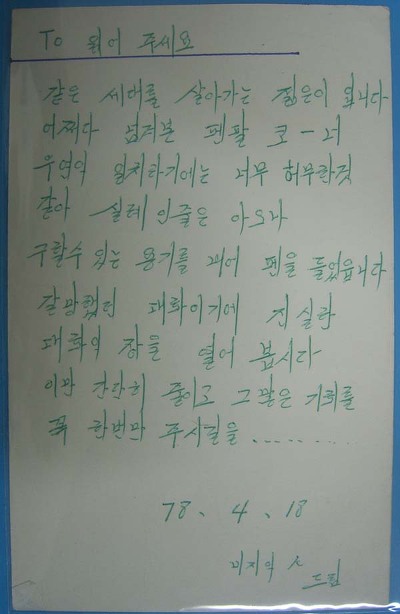 To 읽어 주세요
같은 세대를 살아가는 젊은이 입니다
어쩌다 넘겨본 펜팔 코-너
우연의 일치라기에는 너무 허무한것
같아 실례 인줄은 아오나
구할수 있는 용기를 내어 펜을 들었읍니다
갈망했던 대화이기에 진실한
대화의 장을 열어 봅시다
이만 간단히 줄이고 그 많은 기회를
꼭 한번만 주시길을........
78、4、18
드림